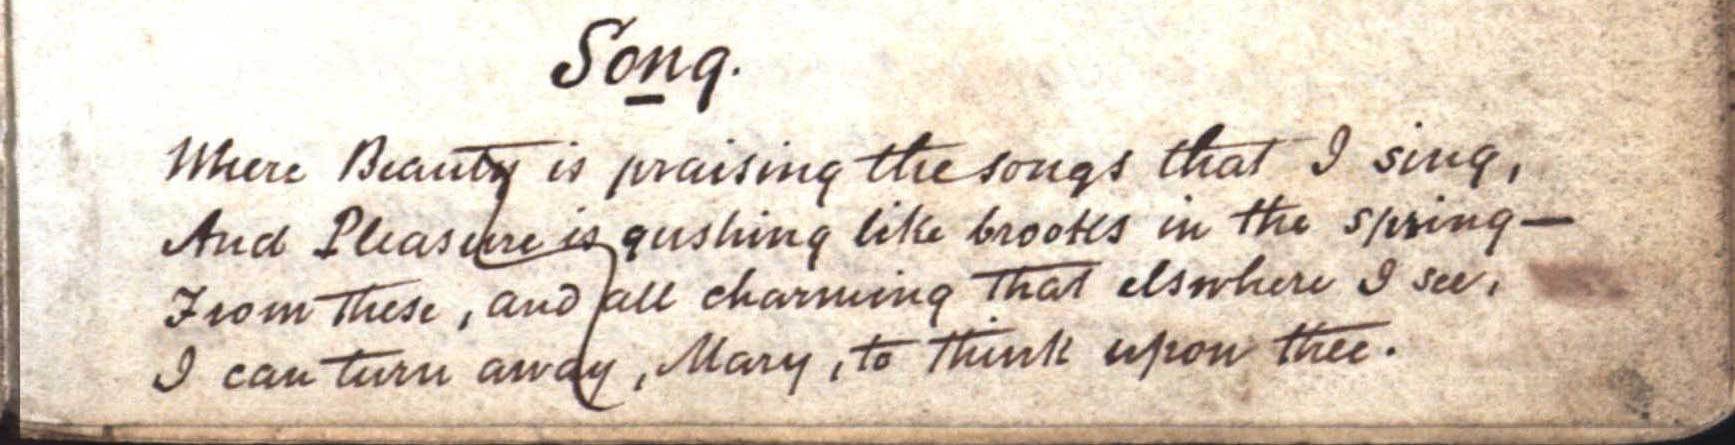 Song.
Where Beauty is praising the songs that I sing,
And Pleasure is gushing like brooks in the spring—
From these, and all charming that elswhere I see,
I can turn away, Mary, to think upon thee.